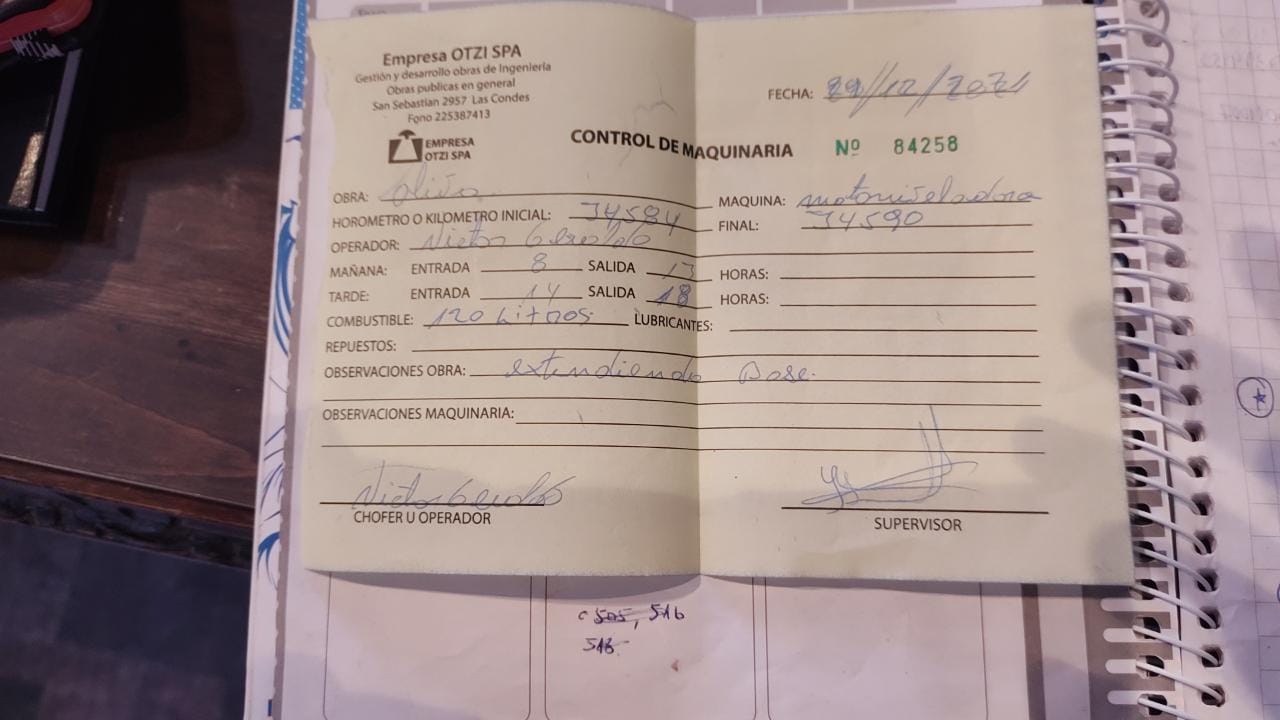 Empresa OTZI SPA
Gestión y desarrollo obras de Ingeniería
Obras publicas en general
San Sebastian 2957 Las Condes
Fono 225387413
EMPRESA
OTZI SPA
FECHA: 29/12/2021
CONTROL DE MAQUINARIA Nº 84258
OBRA: MAQUINA: motoniveladora
HOROMETRO O KILOMETRO INICIAL: 34584 FINAL: 34590
OPERADOR: Victor
MAÑANA: ENTRADA 8 SALIDA 13 HORAS:
TARDE: ENTRADA 14 SALIDA 18 HORAS:
COMBUSTIBLE: 120 Litros. LUBRICANTES:
REPUESTOS:
OBSERVACIONES OBRA: extendiendo Base.
OBSERVACIONES MAQUINARIA:
Victor
CHOFER U OPERADOR
SUPERVISOR
505, 516
516